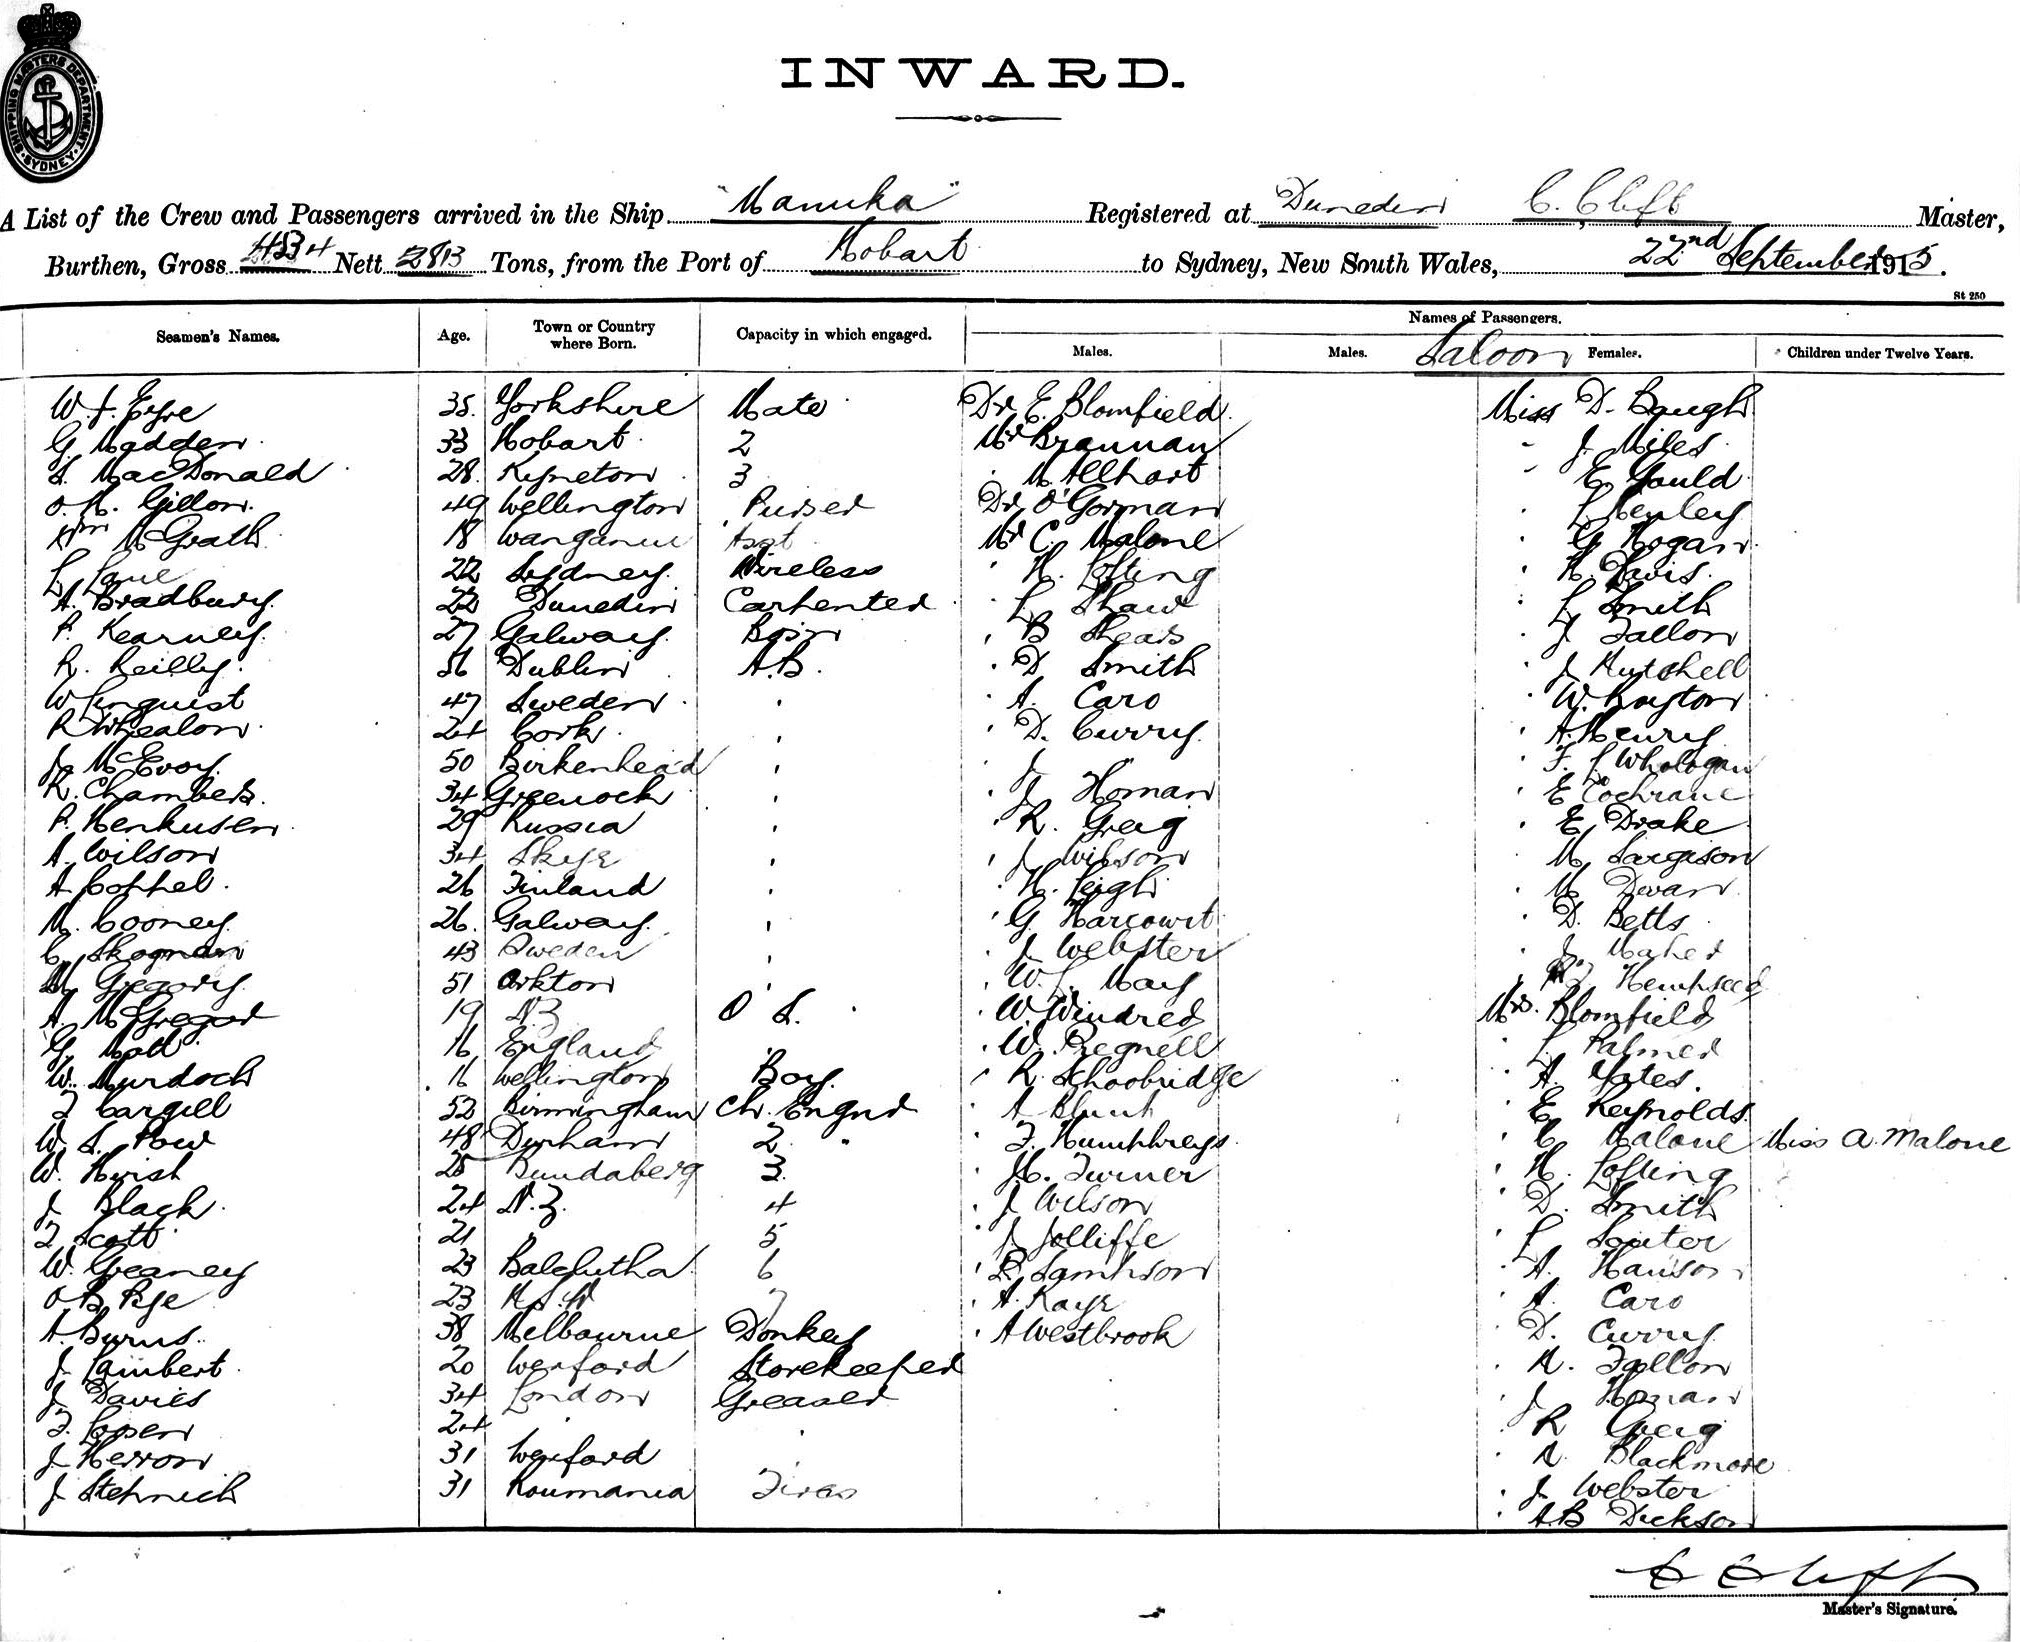 SHIPPING MASTERS DEPARTMENT. SYDNEY.
INWARD.
A List of the Crew and Passengers arrived in the Ship "Manuka" Registered at Dunedin C. Clift Master,
Burthen, Gross Nett Tons, from the Port of Hobart to Sydney, New South Wales, 22nd September 1915.
St 250
Names of Passengers.
Seamen's Names. Age. Town or Country where Born. Capacity in which engaged. Males. Males. Saloon Females. Children under Twelve Years.
W. J. Eyre 35. Yorkshire Mate Dr. E. Blomfield. Miss D. Baugh
G. Madden 33 Hobart 2 Mr Brannan " J. Miles
S. MacDonald 28. Kyneton 3 " M Allhart " E. Gould
O. R. Gillon. 49 Wellington Purser Dr O'Gorman " L Henley
Wm McGrath 18 Wanganui Asst Mr C. Malone " G Hogan
L Lane 22 Sydney. Wireless " H. Lofting " H. Davis.
A. Bradbury. 22 Dunedin Carpenter " L Shaw " L Smith
P. Kearney. 27 Galway. Bosn " B Shears " J Fallon
R. Reilly. 56 Dublin A.B. " D Smith " J Mutshell
W Linquist 47 Sweden " " A. Caro " W. Boyton
R Whealon 24 Cork " " D. Curry. " A. Henry
J. McEvoy. 50 Birkenhead " " J " F. L Whologan
R. Chambers. 34 Greenock " " J Homan " E Cochrane
P. Henkusen 29 Russia " " R. Greig " E. Drake
A. Wilson 34 Skye " " J Wilson " M Sargison
A Coppel. 26 Finland " " H. Leigh " M Dwan
M. Cooney. 26. Galway. " " G. Harcourt " D. Betts
C. Skogman 43 Sweden " " J Webster " J. Maher
M Gregory. 51 " " W. L. May " Hempseed
A. McGregor 19 N.Z. O S. " W. Windred Mrs. Blomfield
G. Mott 16 England " " W. Pregnell " L. Palmer
W. Murdoch 16 Wellington Boy. " R. Schoobridge " A. Yates.
J Cargill 52 Birmingham Ch. Engnr " A Blunt " E Reynolds.
W. S. Pow 48 Durham 2. " " F. Humphreys. " C Malone Miss A. Malone
W. Hirst 25 Bundaberg 3. " H. Turner " H. Lofting
J Black. 24 N.Z. 4 " J Wilson " D. Smith
J Scott 21 " 5 " J. Jolliffe " L Souter
W. Greaney 23 Balclutha. 6 " R. Sampson " A. Hanson
O B Pye 23 N.S.W 7 " A. Kaye " A Caro
A. Byrns. 38 Melbourne Donkey " A Westbrook " D. Curry.
J. Lambert. 20 Wexford Storekeeper " N. Fallon
J Davies 34 London Greaser " J Homan
J. 24 " " " R Greig
J Herron 31 Wexford " " N. Blackmore
J Stehnich 31 Roumania Firer " J. Webster
" A.B Dickson
C Clift
Master's Signature.